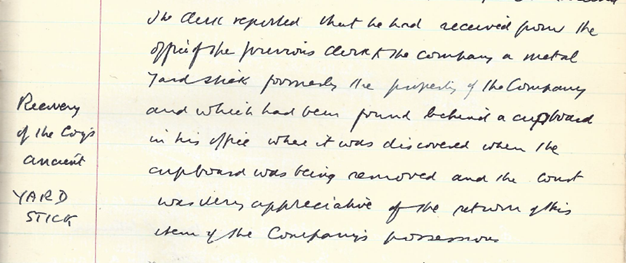 The Clerk reported that he had received from the
office of the previous Clerk to the Company a metal
Yard stick formerly the property of the Company
and which had been found behind a cupboard
in his office where it was discovered when the
cupboard was being removed and the Court
was very appreciative of the return of this
item of the Company's possessions
Recovery
of the Coy's
ancient
YARD
STICK